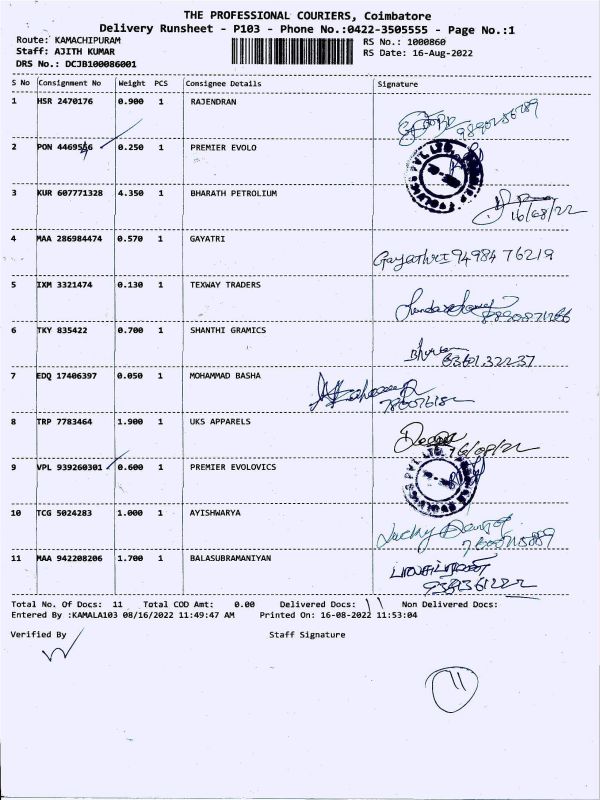 THE PROFESSIONAL COURIERS, Coimbatore
Delivery Runsheet - P103 - Phone No.:0422-3505555 - Page No.:1
Route: KAMACHIPURAM RS No.: 1000860
Staff: AJITH KUMAR RS Date: 16-Aug-2022
DRS No.: DCJB100086001
S No Consignment No Weight PCS Consignee Details Signature
1 HSR 2470176 0.900 1 RAJENDRAN
2 PON 0.250 1 PREMIER EVOLO
3 KUR 607771328 4.350 1 BHARATH PETROLIUM
16/08/22
4 MAA 286984474 0.570 1 GAYATRI
94984 76219
5 IXM 3321474 0.130 1 TEXWAY TRADERS
6 TKY 835422 0.700 1 SHANTHI GRAMICS
7 EDQ 17406397 0.050 1 MOHAMMAD BASHA
8 TRP 7783464 1.900 1 UKS APPARELS
16/08/22
9 VPL 939260301 0.600 1 PREMIER EVOLOVICS
10 TCG 5024283 1.000 1 AYISHWARYA
11 MAA 942208206 1.700 1 BALASUBRAMANIYAN
Total No. Of Docs: 11 Total COD Amt: 0.00 Delivered Docs: 11 Non Delivered Docs:
Entered By :KAMALA103 08/16/2022 11:49:47 AM Printed On: 16-08-2022 11:53:04
Verified By Staff Signature
11